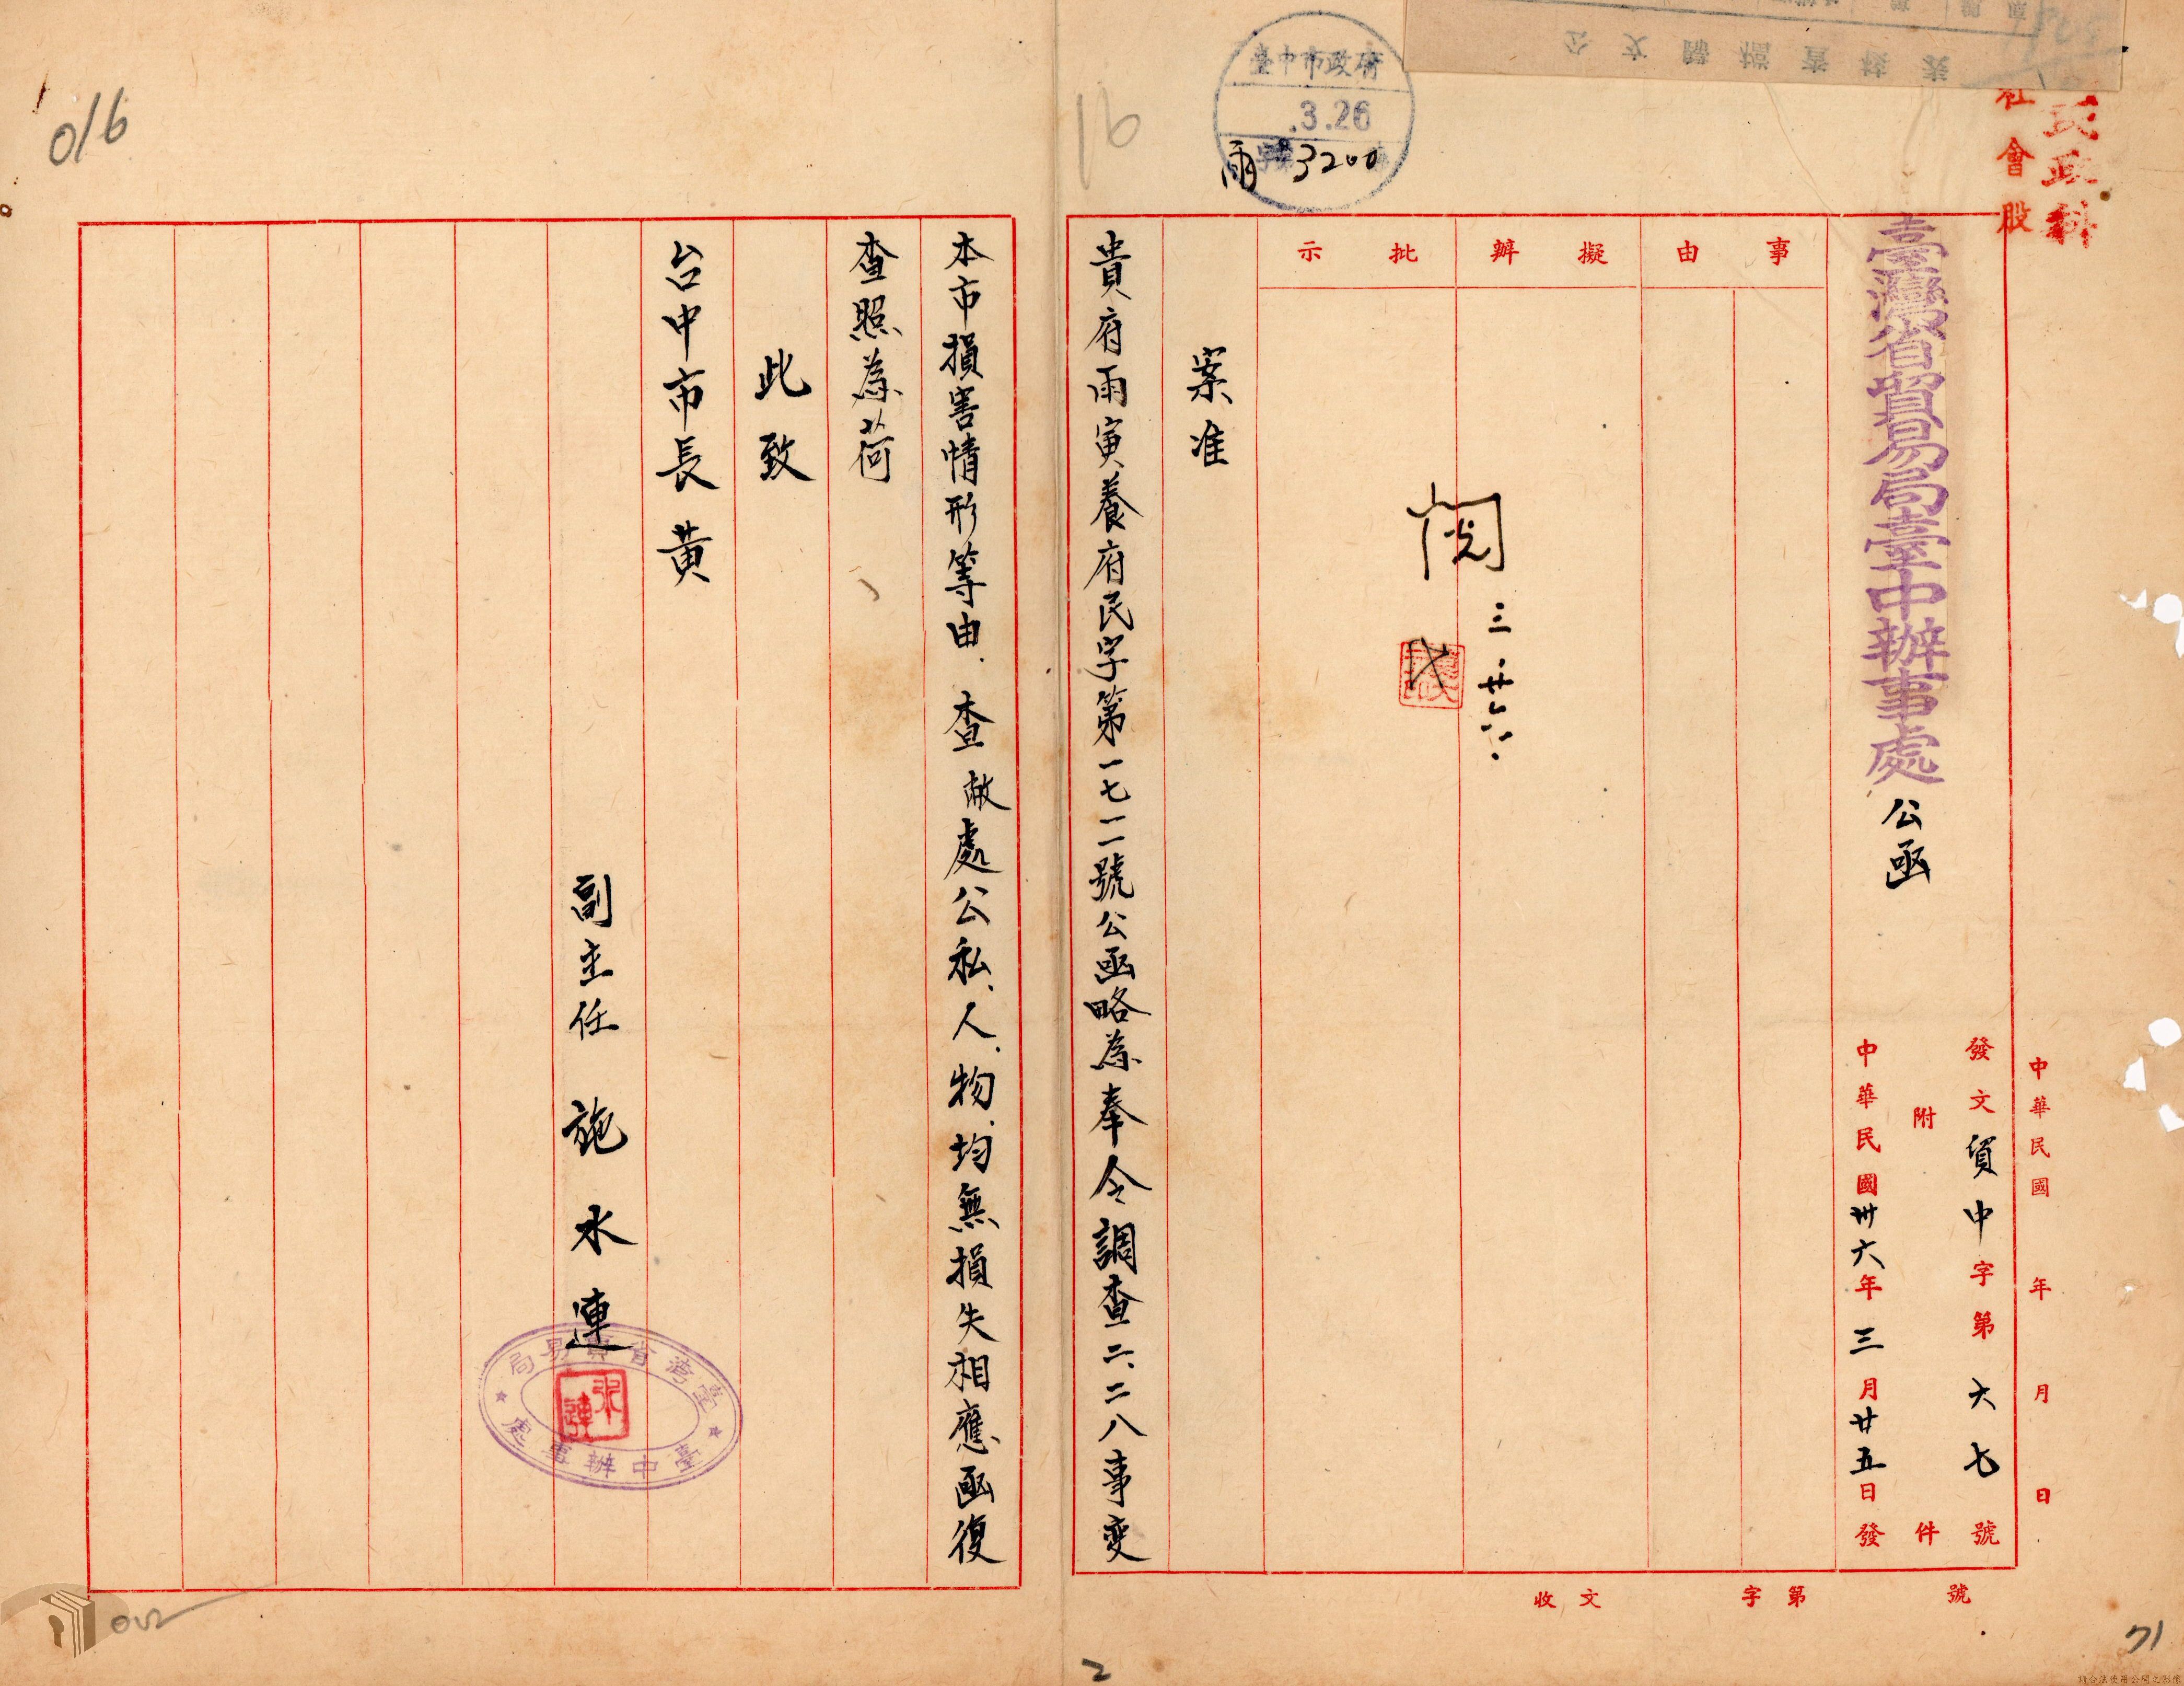 臺中市政府
.3.26
雨字第3200號
民政科
社會股
臺灣省貿易局臺中辦事處公函
中華民國 年 月 日
發文貿中字第六七號
附 件
中華民國卅六年三月廿五日發
事由
擬辦
批示
閱
三.廿六.
案准
貴府雨寅養府民字第一七一二號公函略為奉令調查二、二八事变
本市損害情形等由、查敝處公私、人、物、均無損失相應函復
查照為荷
此致
台中市長黃
副主任 施水連
臺灣省貿易局
臺中辦事處
水連
收文 字第 號
016
16
71
2